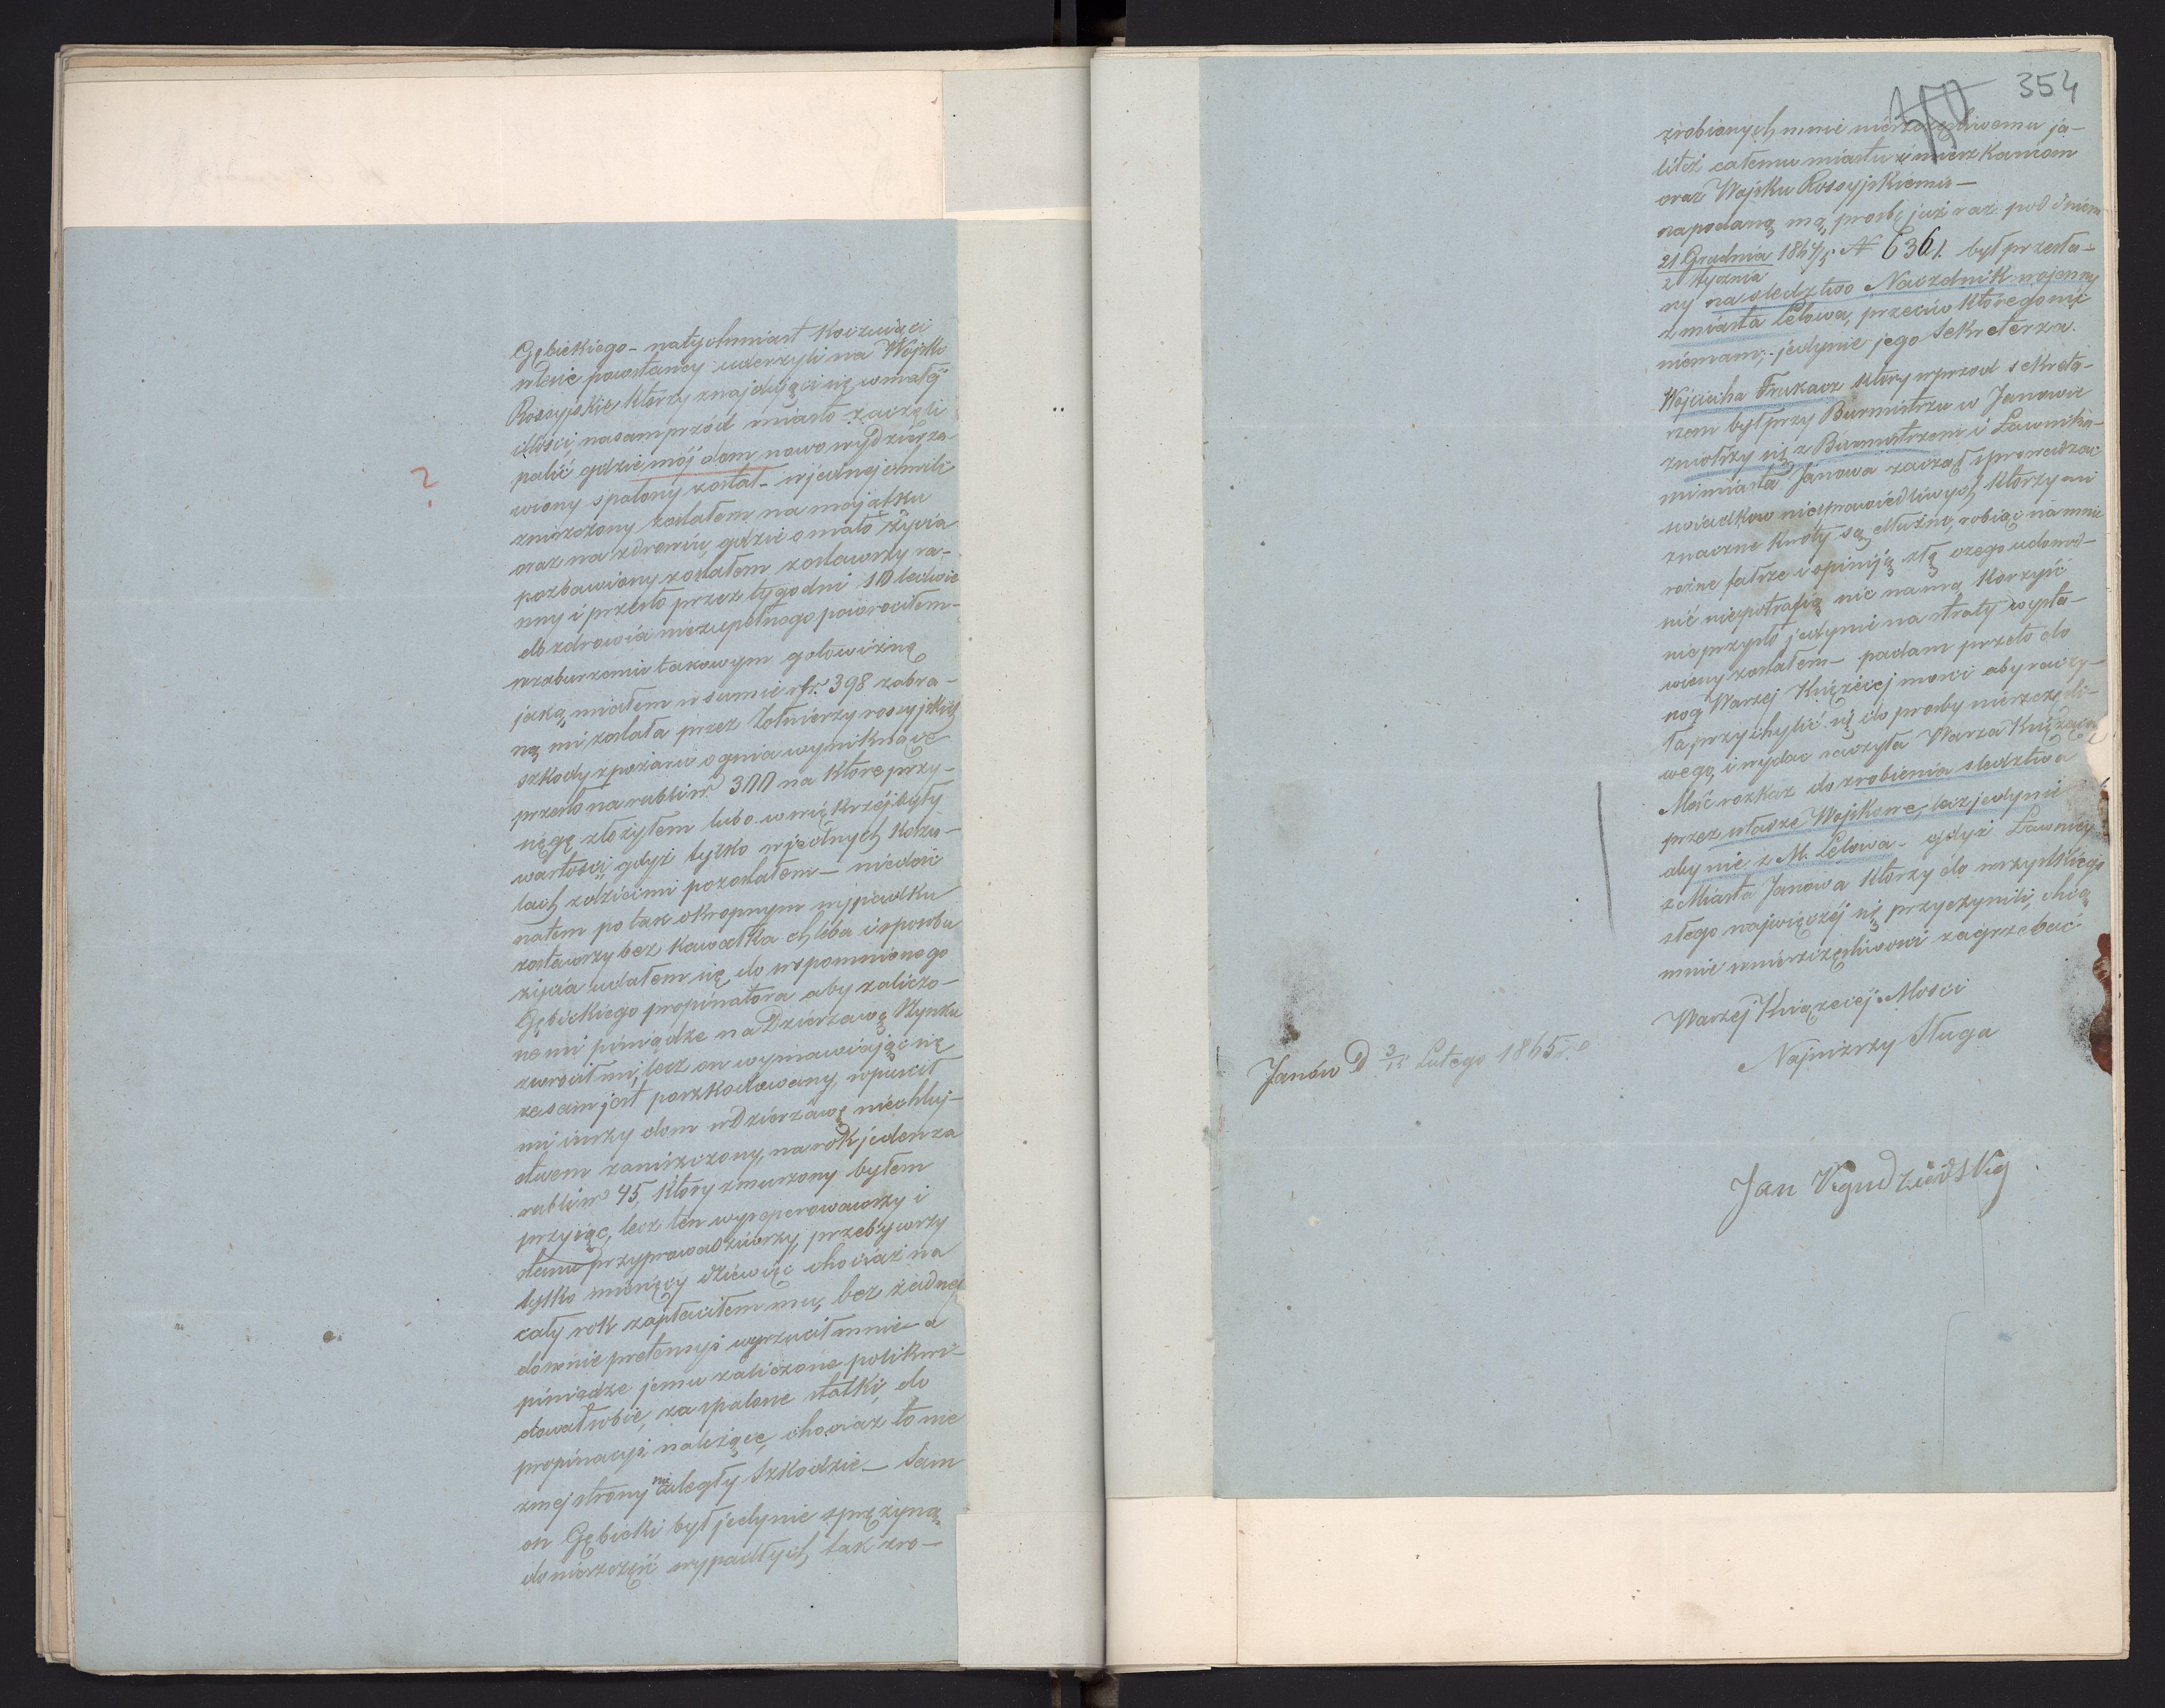 Gębickiego – natychmiast koczujący
w lesie powstańcy uderzyli na Wojsko
Rossyjskie którzy znajdujący się w małej
ilości, nasamprzód miasto zaczęli
palić gdzie mój dom nowo wydzierża-
wiony spalony został – w jednej chwili
zniszczony zostałem na majątku
oraz na zdrowiu, gdzie o mało życia
pozbawiony zostałem zostawszy ra-
nny i przeto przez tygodni 10 ledwie
do zdrowia niezupełnego powróciłem –
w zaburzeniu takowym gotowiznę
jaką miałem w sumie rbr. 398 zabra-
ną mi została przez żołnierzy rossyjskich
szkody z pożaru ognia wyniknąwę
przeszło na rubli sr. 300 na które przy-
sięgę złożyłem lubo w większej były
wartości gdyż tylko w jednych koszu-
lach z dziećmi pozostałem – niedość
natem po tak okropnym wypadku
zostawszy bez kawałka chleba i sposobu
życia udałem się do wspomnionego
Gębickiego propinatora aby zaliczo-
ne mi pieniądze na Dzierżawę Szynku
zwrócił mi, lecz on wymawiając się
że sam jest poszkodowany, wpuścił
mi inszy dom w Dzierżawę niechluj-
stwem zaniszczony, na rok jeden za
rubli sr. 45, który zmuszony byłem
przyjąc, lecz ten wyreperowawszy i
stanu przyprowadziwszy, przebywszy
tylko miesięcy dziewięć chociaż na
cały rok zapłaciłem mu, bez żadnej
do mnie pretensyi wyrzucił mnie – a
pieniądze jemu zaliczone polikwi-
dował sobie, za spalone statki, do
propinacyi należące, chociaż to nie
z mej strony nie uległy szkodzie – Sam
on Gębicki był jedynie sprężyną
do nieszczęść wypadłych tak zro-
354
zrobionych mnie nieszczęśliwemu ja-
liteż całemu miastu i mieszkaniom
oraz Wojsku Rossyjskiemu –
na podaną mą prośbę już raz pod dniem
21 Grudnia 1864/5 N 6361. był przesła-
2 stycznia
ny na sledztwo Naczelnik wojenny
z miasta Lelowa, przeciw którego nic
niemam, – jedynie jego Sekreterza
Wojciecha Trukacz który wprzód sekreta-
rzem był przy Burmistrzu w Janowie
zmotszy się z Burmistrzem i Ławnika-
mi miasta Janowa zaczął sprowadzac
swiadkow niesprawiedliwych którzy mi
znaczne kwoty są dłużne, robiąc na mnie
rożne fałsze i opiniją złą czego udowod-
nić niepotrafią nic na mą korzyść
nie przyszło jedynie na straty wysta-
wiony zostałem – padam przeto do
nog Waszej Książęcej mosci aby raczy-
ła przychylić się do prosby nieszczęśli-
wego, i wydac raczyła Wasza Książęca
Mość rozkaz do zrobienia sledztwa
przez władze Wojskowe, lecz jedynie
aby nie z M. Lelowa – gdyż Ławnicy
z Miasta Janowa którzy do wszystkiego
złego najwięcéj się przyczynili, chcą
mnie nieszczęśliwowi zagrzebać
Waszej Książęcej Mosci
Najniższy Sługa
Janów D 3/15 Lutego 1865 r.
Jan